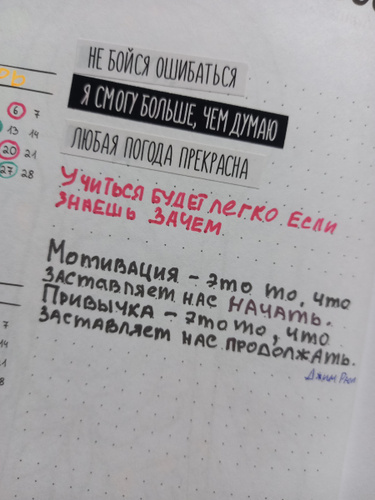 РЬ
6 7
13 14
20 21
27 28
7
14
21
8
НЕ БОЙСЯ ОШИБАТЬСЯ
Я СМОГУ БОЛЬШЕ, ЧЕМ ДУМАЮ
ЛЮБАЯ ПОГОДА ПРЕКРАСНА
УЧИТЬСЯ БУДЕТ ЛЕГКО ЕСЛИ
ЗНАЕШЬ ЗАЧЕМ
МОТИВАЦИЯ – ЭТО ТО, ЧТО
ЗАСТАВЛЯЕТ НАС НАЧАТЬ.
ПРИВЫЧКА – ЭТО ТО, ЧТО
ЗАСТАВЛЯЕТ НАС ПРОДОЛЖАТЬ.
ДЖИМ РЮН